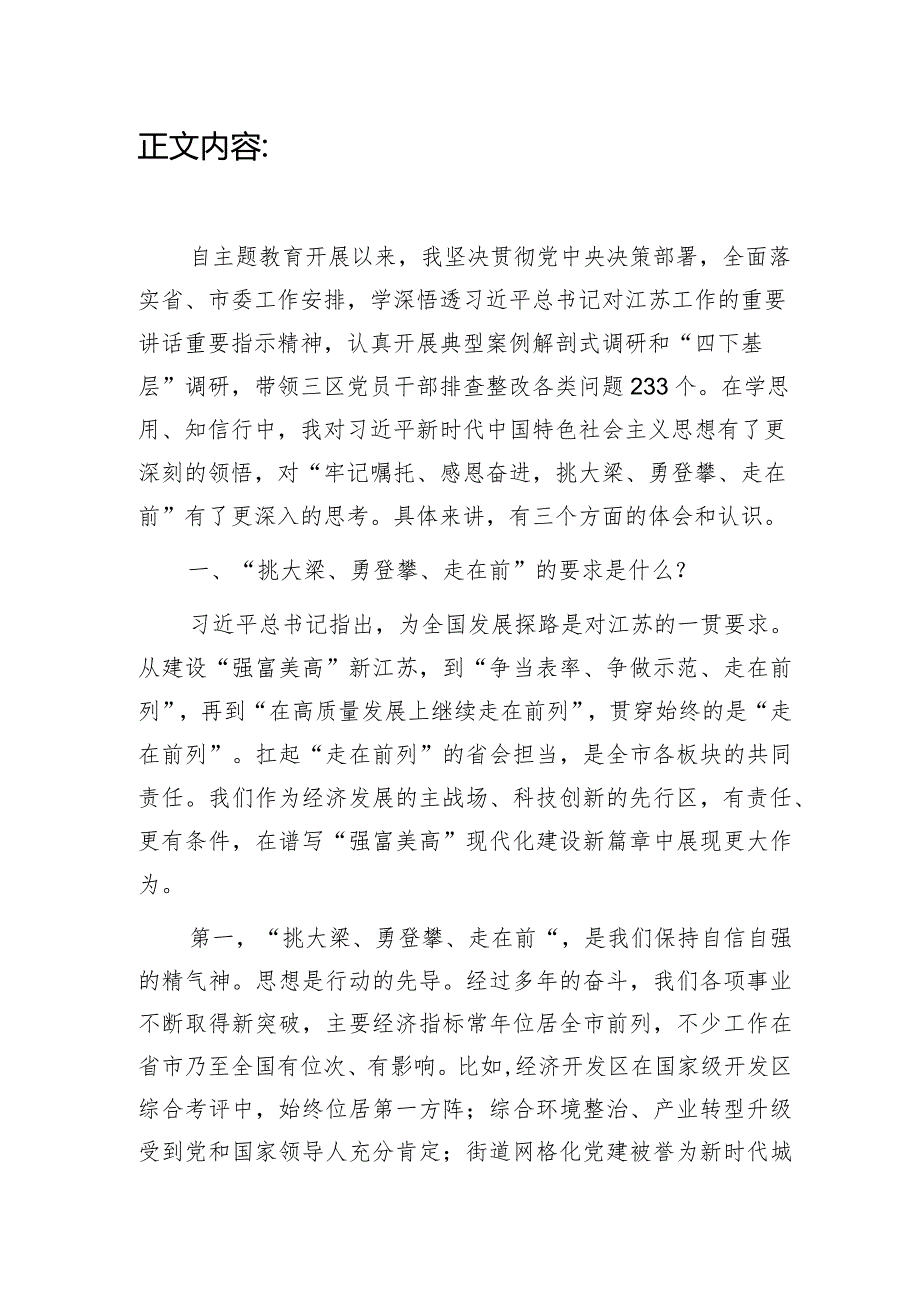 正文内容:
自主题教育开展以来，我坚决贯彻党中央决策部署，全面落
实省、市委工作安排，学深悟透习近平总书记对江苏工作的重要
讲话重要指示精神，认真开展典型案例解剖式调研和“四下基
层”调研，带领三区党员干部排查整改各类问题 233 个。在学思
用、知信行中，我对习近平新时代中国特色社会主义思想有了更
深刻的领悟，对“牢记嘱托、感恩奋进，挑大梁、勇登攀、走在
前”有了更深入的思考。具体来讲，有三个方面的体会和认识。
一、“挑大梁、勇登攀、走在前”的要求是什么？
习近平总书记指出，为全国发展探路是对江苏的一贯要求。
从建设“强富美高”新江苏，到“争当表率、争做示范、走在前
列”，再到“在高质量发展上继续走在前列”，贯穿始终的是“走
在前列”。扛起“走在前列”的省会担当，是全市各板块的共同
责任。我们作为经济发展的主战场、科技创新的先行区，有责任、
更有条件，在谱写“强富美高”现代化建设新篇章中展现更大作
为。
第一，“挑大梁、勇登攀、走在前“，是我们保持自信自强
的精气神。思想是行动的先导。经过多年的奋斗，我们各项事业
不断取得新突破，主要经济指标常年位居全市前列，不少工作在
省市乃至全国有位次、有影响。比如,经济开发区在国家级开发区
综合考评中，始终位居第一方阵；综合环境整治、产业转型升级
受到党和国家领导人充分肯定；街道网格化党建被誉为新时代城